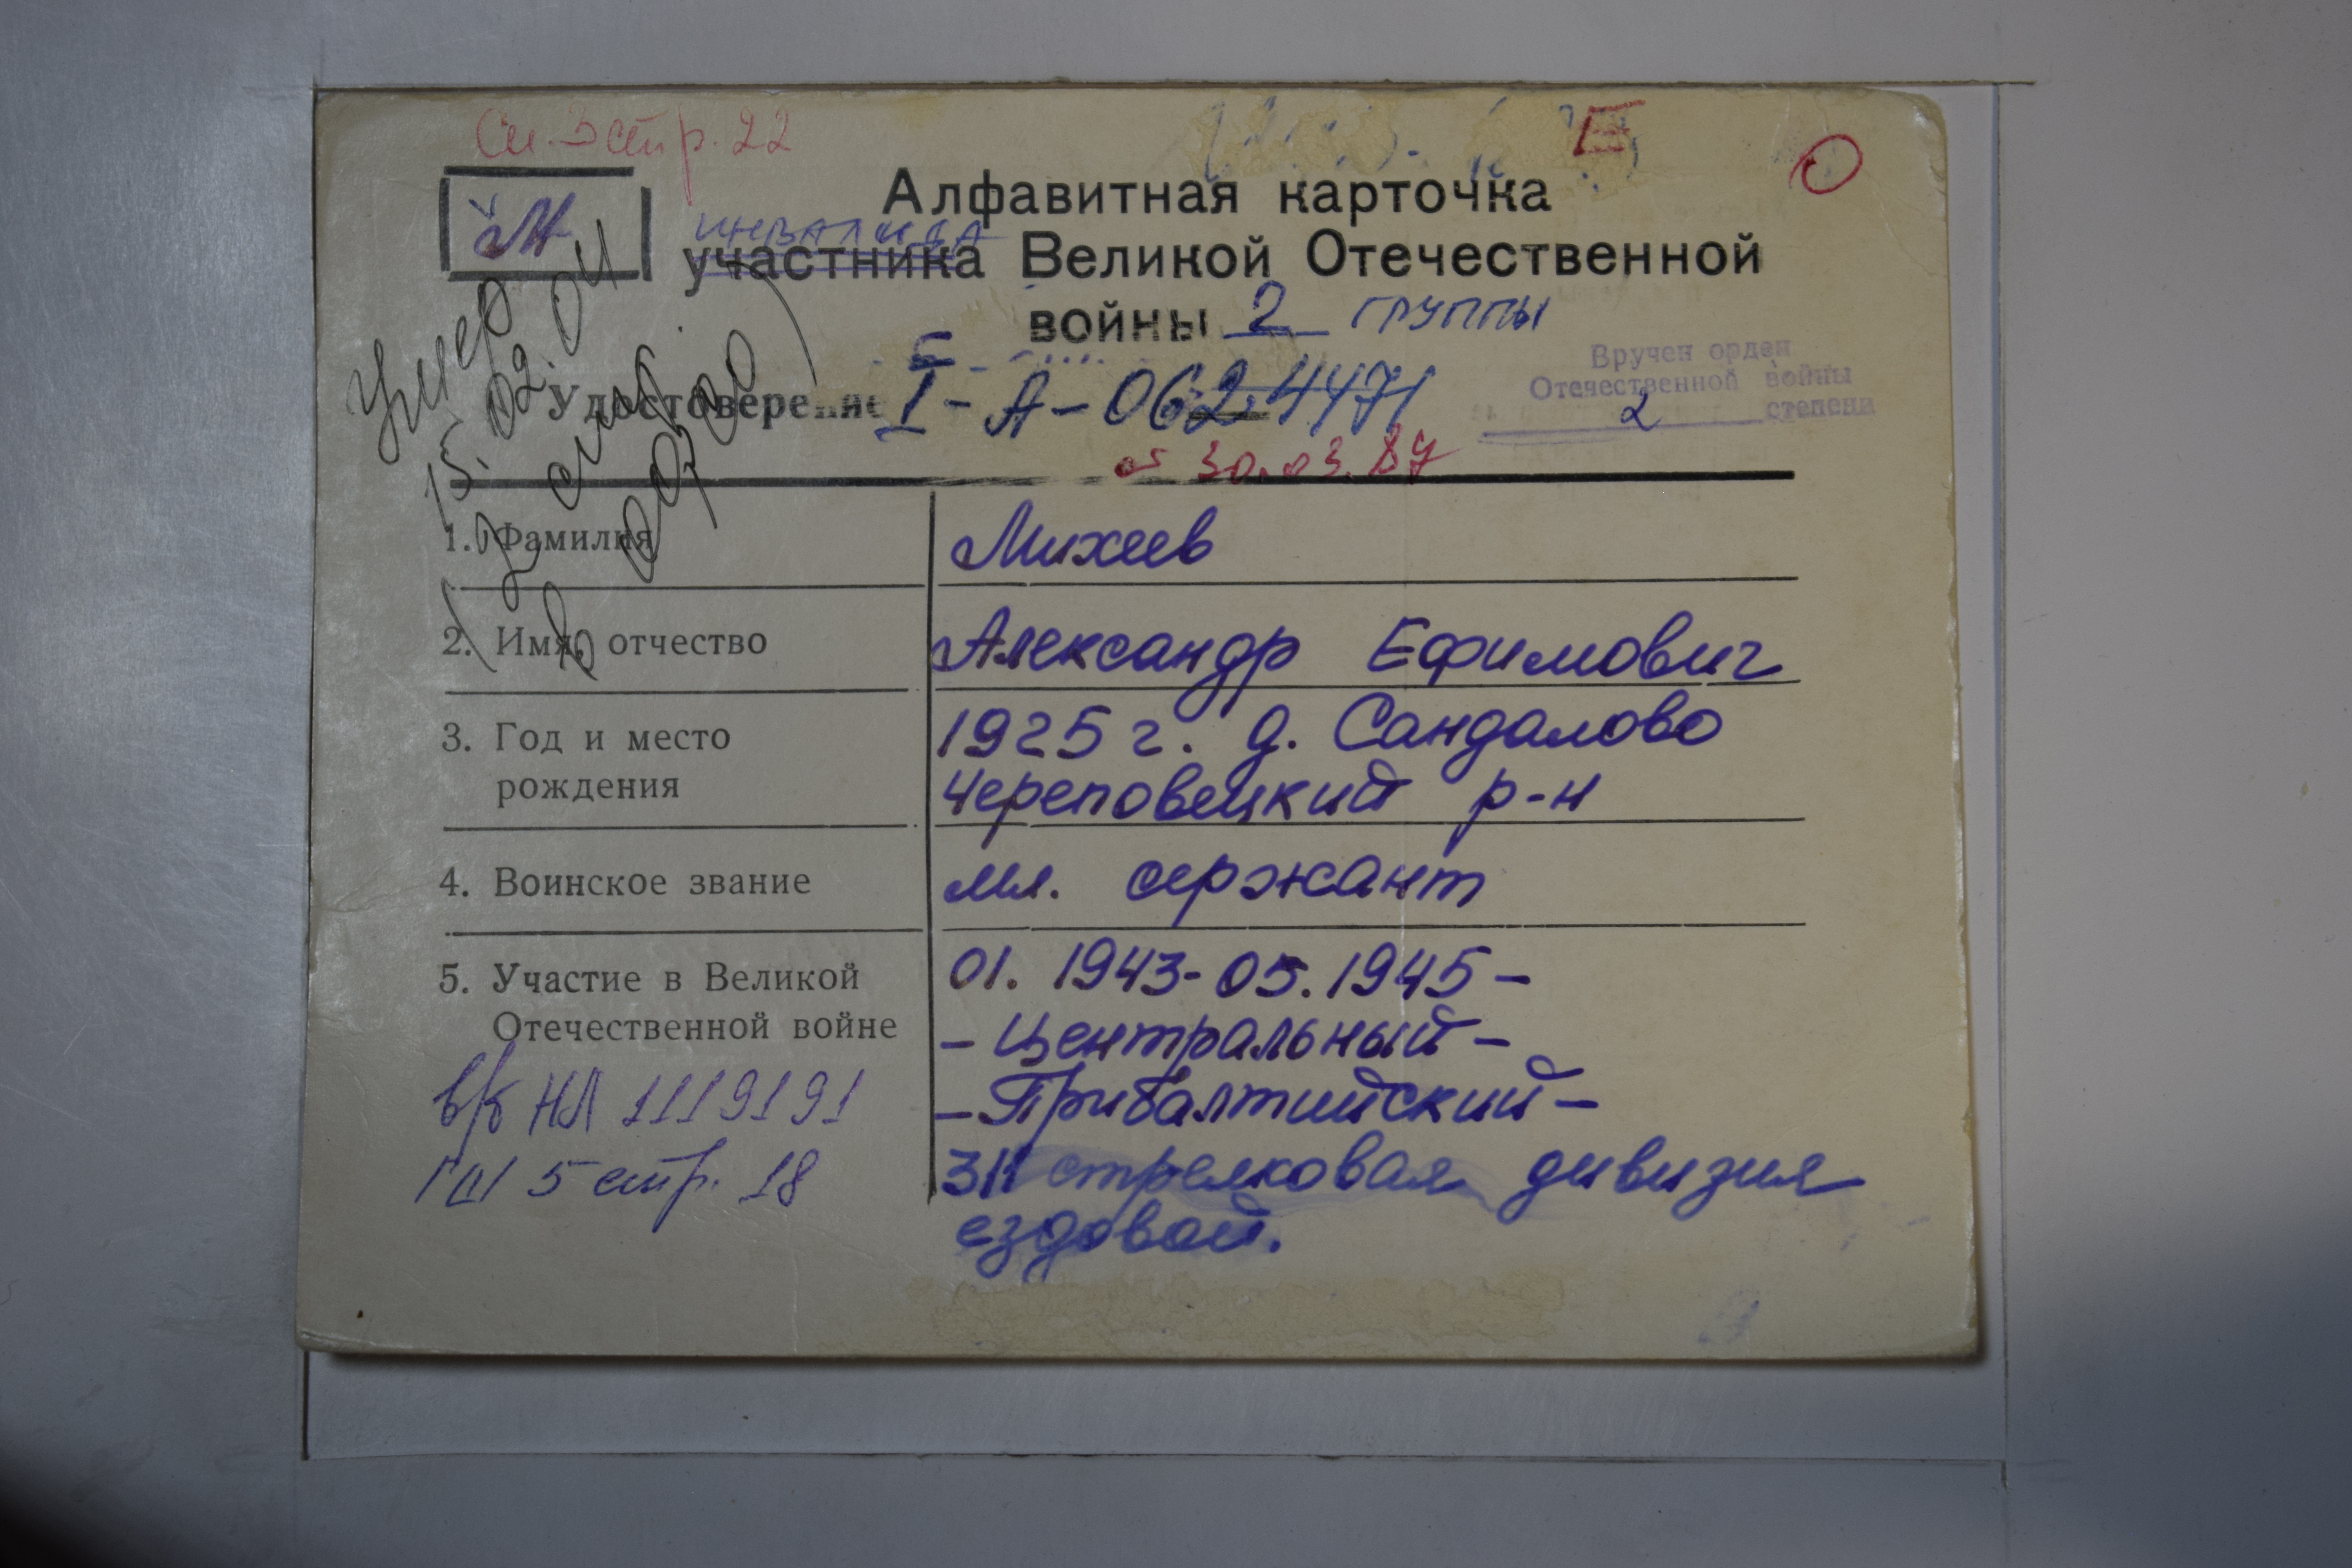 Сп. 3 стр. 22
Е
О
М
Алфавитная карточка
инвалида
участника Великой Отечественной
войны 2 группы
Вручен орден
Отечественной войны
2 степени
Удостоверение I-А-0624471
от 30.03.87
Умер
15.02.04
1. Фамилия Михеев
2. Имя, отчество Александр Ефимович
3. Год и место 1925 г. д. Сандалово
рождения Череповецкий р-н
4. Воинское звание мл. сержант
5. Участие в Великой 01.1943-05.1945-
Отечественной войне -Центральный-
в/к НЛ 1119191 -Прибалтийский-
ГШ 5 стр. 18 311 стрелковая дивизия
ездовой.